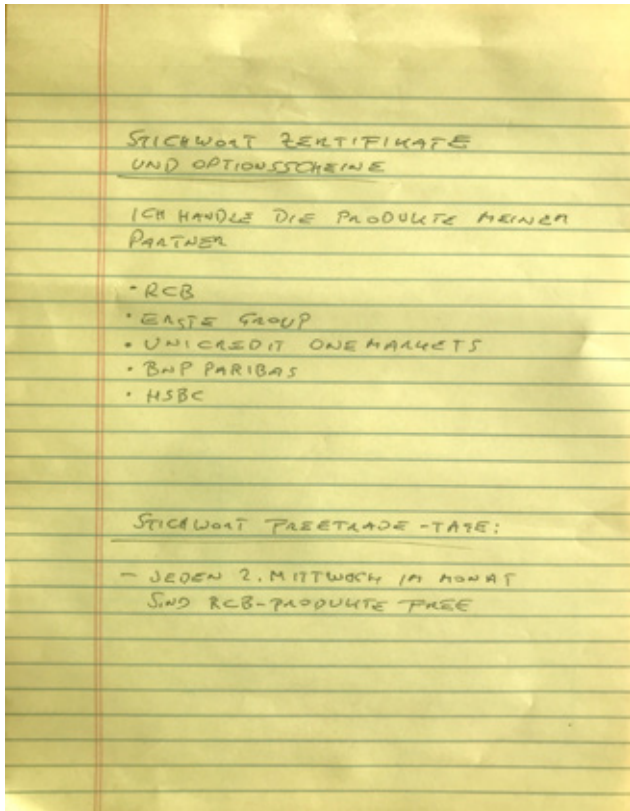 STICHWORT ZERTIFIKATE
UND OPTIONSSCHEINE
ICH HANDLE DIE PRODUKTE MEINER
PARTNER
• RCB
• ERSTE GROUP
• UNICREDIT ONEMARKETS
• BNP PARIBAS
• HSBC
STICHWORT FREETRADE-TAGE:
- JEDEN 2. MITTWOCH IM MONAT
SIND RCB-PRODUKTE FREE